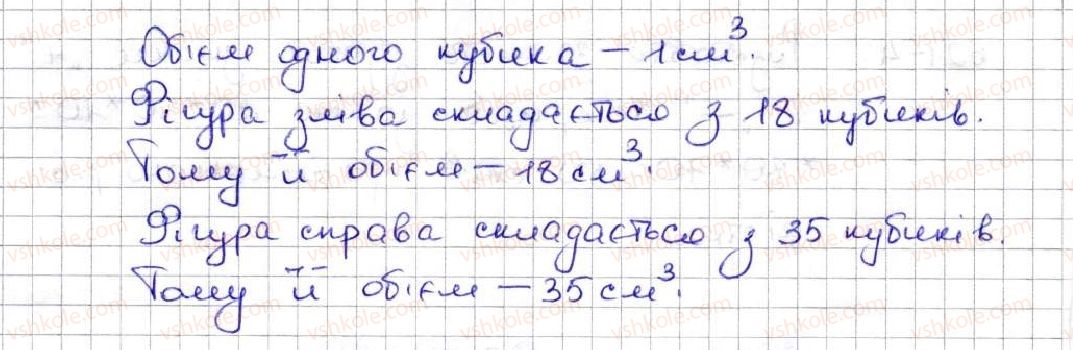 Обієм одного кубика – 1 см³.
Фігура зліва складається з 18 кубиків.
Тому її обієм – 18 см³.
Фігура справа складається з 35 кубиків.
Тому її обієм – 35 см³.